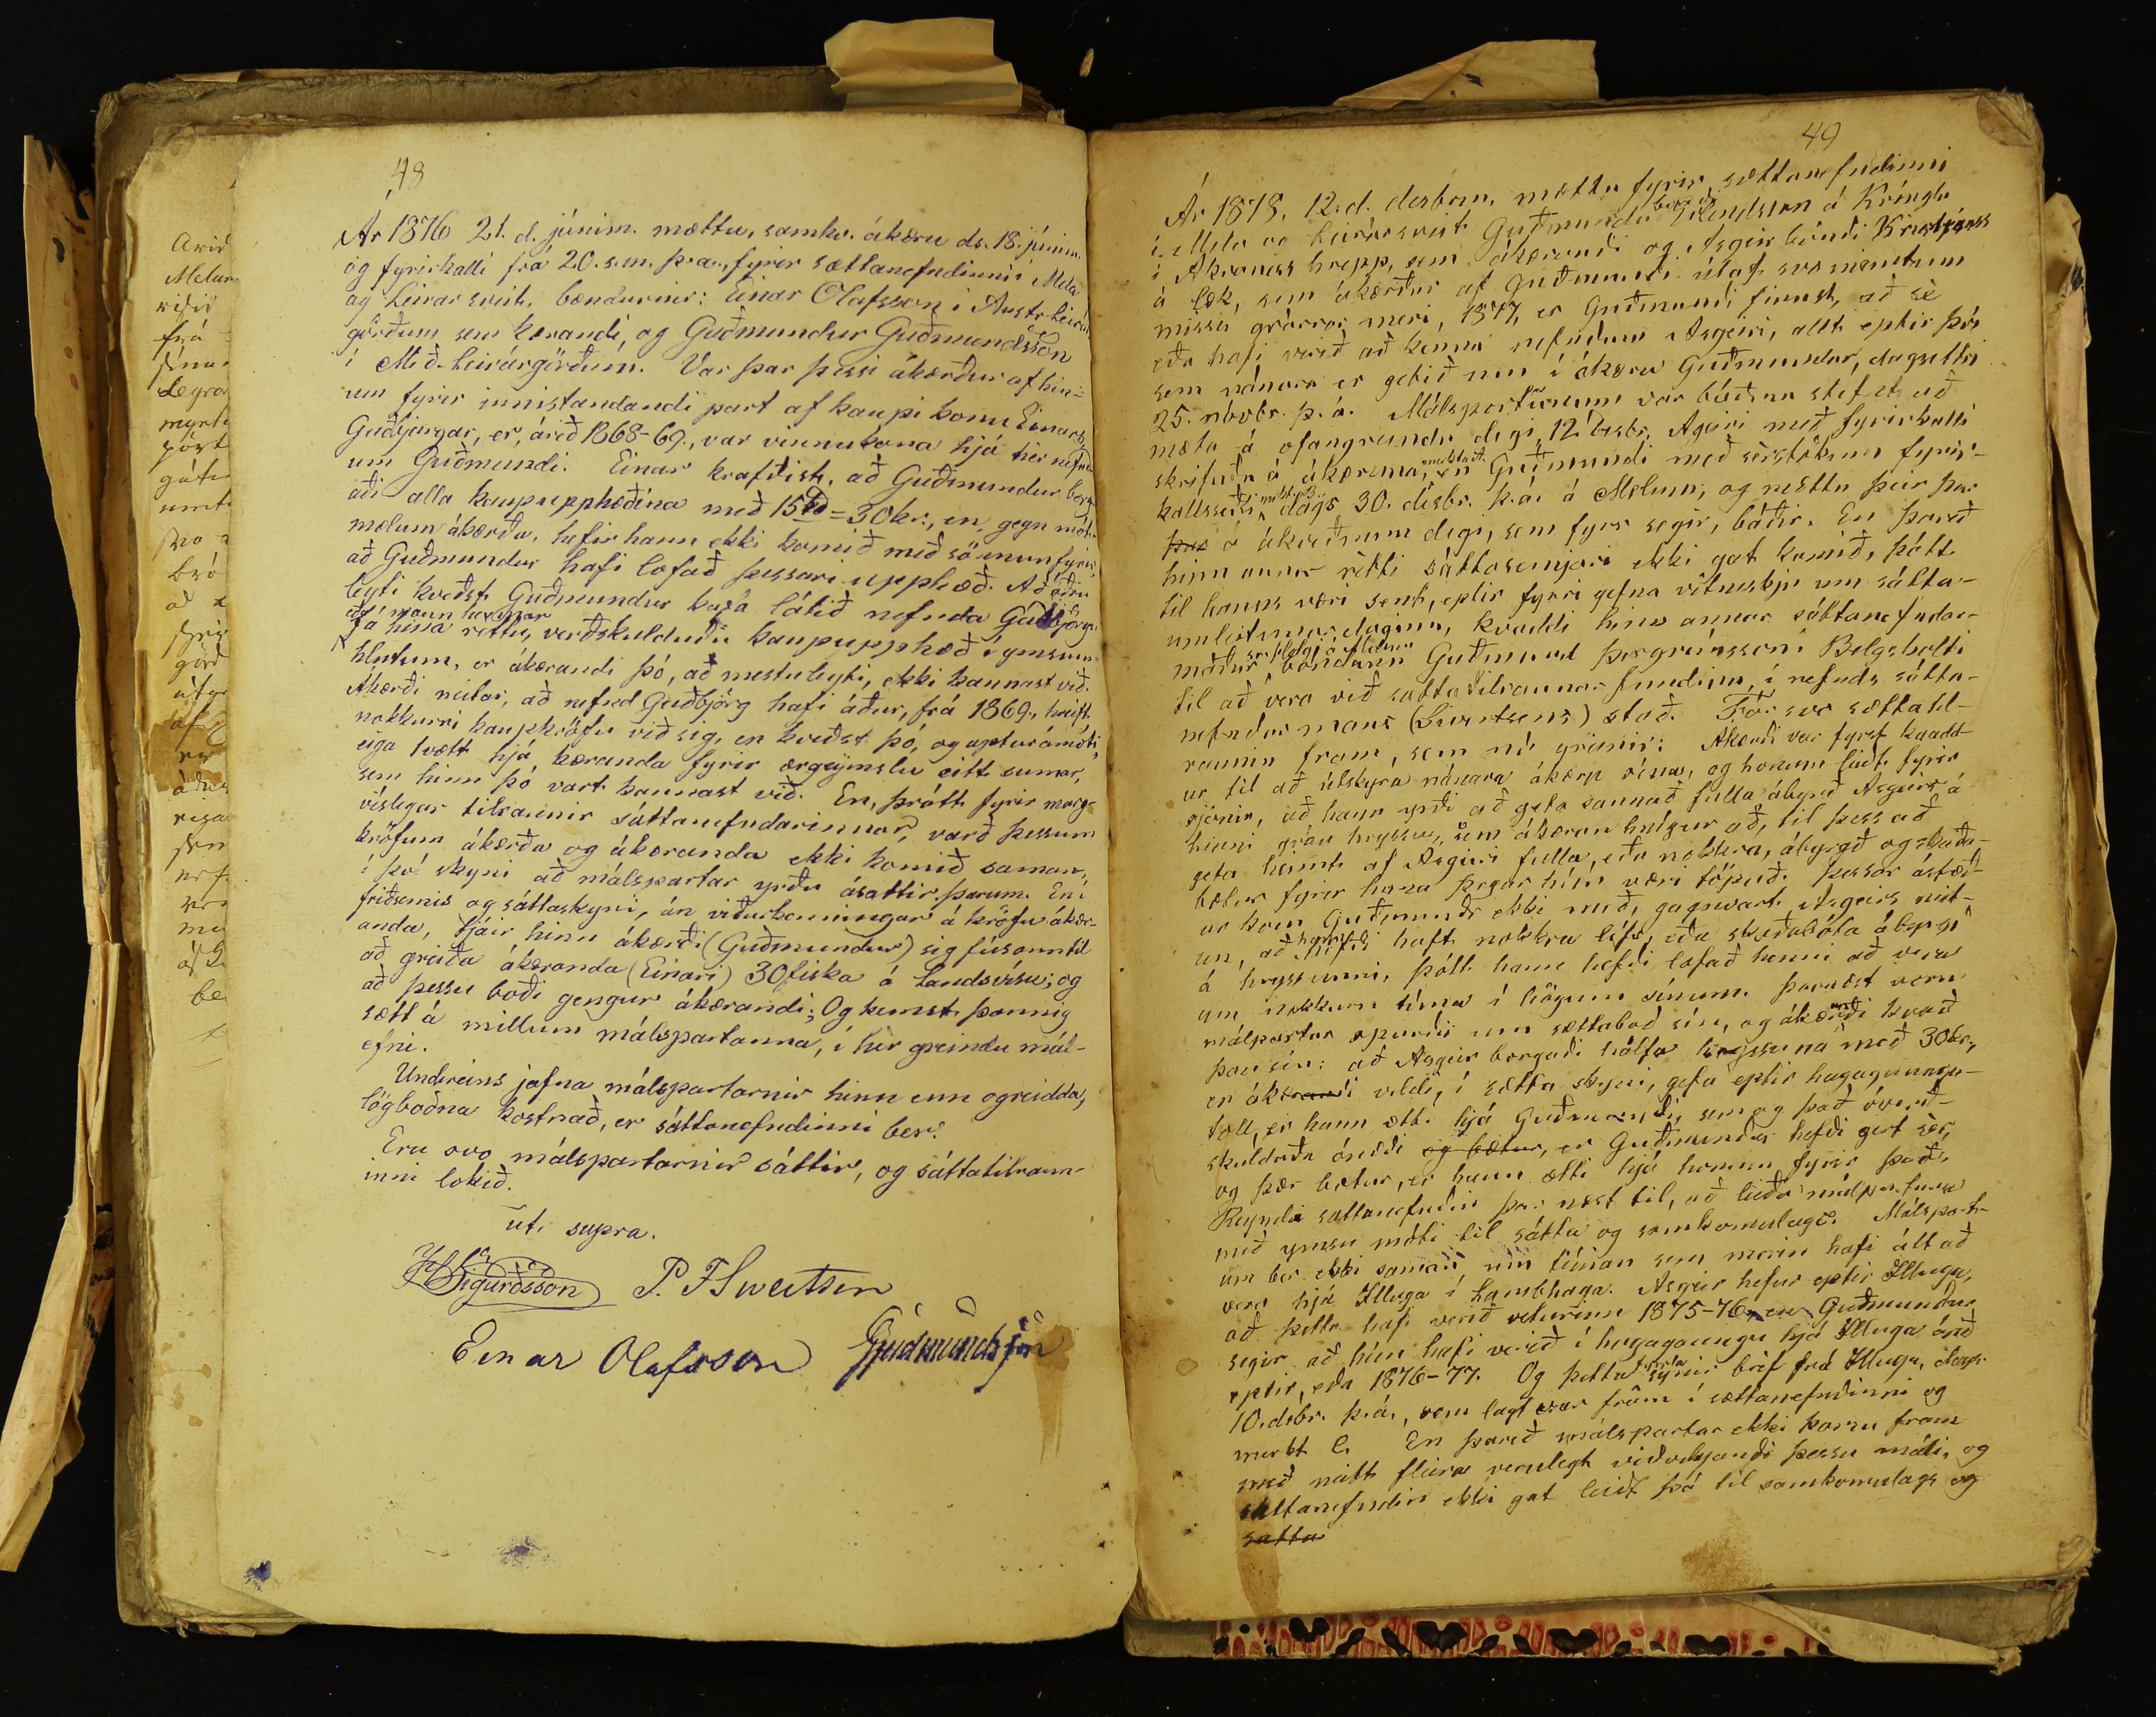 48
Ár 1876 21. d. júním. mættu, samkv. ákæru ds. 18. júním.
og fyrirkalli frá 20. s.m. þ.a., fyrir sættanefndinni í Mela
og Leirársveit, bændurnir: Einar Olafsson í Austr-Leirár
görðum sem kærandi, og Guðmundur Guðmundsson
í Mið-Leirárgörðum. Var þar þessi ákærður af hin-
um fyrir innistandandi part af kaupi konu Einars,
Guðbjargar, er, árið 1868-69., var vinnukona hjá hér nefnd
um Guðmundi. Einar krafðist, að Guðmundur borg
aði alla kaupupphæðina með 15 rd = 30 kr., en, gegn mót-
mælum ákærða, hefir hann ekki komið með sönnun fyrir,
að Guðmundur hafi lofað þessari upphæð. Að öðru
leyti kveðst Guðmundur hafa látið nefnda Guðbjörgu
fá hina réttu, verðskulduðu kaupupphæð í ymsum
hlutum, er ákærandi þó, að mestu leyti, ekki kannast við.
Ákærði neitar, að nefnd Guðbjörg hafi áður, frá 1869., hreift
nokkurri kaupkröfu við sig, en kveðst þó, og aptur á móti,
eiga tvætt hjá kæranda fyrir ærgeymslu eitt sumar,
sem hinn þó vart kannast við. En, þrátt fyrir marg-
víslegar tilraunir sáttanefndarinnar, varð þessum
kröfum ákærða og ákæranda ekki komið saman,
í því skyni að málspartar yrðu ásáttir þarum. En í
friðsemis og sáttaskyni, án viðurkenningar á kröfu ákær-
anda, tjáir hinn ákærði (Guðmundur) sig fúsann til
að greiða ákæranda (Einari) 30 fiska á Landsvísu; og
að þessu boði gengur ákærandi; Og kemst þannig
sætt á millum málspartanna, í hér greindu mál-
efni.
Undireins jafna málspartarnir hinn enn ogreidda,
lögboðna kostnað, er sáttanefndinni ber.
Eru svo málspartarnir sáttir, og sáttatilraun-
inni lokið.
ut supra.
Sigurðsson P. F Sivertsen
Einar Olafsson Guðmundsson
49
Ár 1878, 12. d. desbrm. mættu fyrir sættanefndinni
í Mela og Leirársveit Guðmundur bóndi Erlendsson á Krínglu
í Akraness hrepp, sem ákærandi og Asgeir bóndi Kristjánss
á Læk, sem ákærður af Guðmundi útaf svonemdum
missir grárrar meri, 1877, er Guðmundi finnst, að sé
eða hafi verið að kenna nefndum Asgeiri, allt eptir því
sem nánara er getið um í ákæru Guðmundar, dagsettri
25. nóvbr. þ.á. Málspörtunum var báðum stefnt að
mæta á ofangreindum degi, 12. desbr. Asgeiri með fyrirkalli
skrifuðu á ákæruna, en Guðmundi með sérstökum fyrir-
kallsseðli dags 30. nóvbr. þ.á. á Melum; og mættu þeir þar
á ákveðnum degi, sem fyrr segir, báðir. En þareð
hinn annar rétti sáttasemjari ekki gat komið, þótt
til hanns væri sent, eptir fyrri gefna vitneskju um sátta-
umleitunar, daginn, kvaddi hinn annar sáttanefndar-
maður bóndann Guðmund Þorgrímsson í Belgsholti
til að vera við sáttatilraunar fundinn, í nefnds sátta-
nefndarmans (Sivertsens) stað. Fór svo sættatil-
raunin fram, sem nú greinir: Ákærði var fyrst kvadd-
ur til að útskyra nánara ákæru sína, og honum leitt fyrir
sjónir, að hann yrði að geta sannað fulla ábyrgð Asgeirs á
hinni gráu hryssu, sem ákæran hnígur að, til þess að
geta heimt af Asgeiri fulla, eða nokkra, ábyrgð og skaða-
bætur fyrir hana þegar hún væri töpuð. Þessar ástæð-
ur kom Guðmundr ekki með, gagnvart Asgeirs neit-
un, að hann hefði haft nokkra lífs, eða skaðabóta ábyrgð
á hryssunni, þótt hann hefði lofað henni að vera
um nokkurn tíma í högum sínum. Þarnæst voru
málpartar spurðir um sættaboð sín, og ákærandi kvað
þau sín: að Asgeir borgaði hálfa hryssuna með 30 kr,
er ákærandi vildi, í sætta skyni, gefa eptir hagagaungu-
toll, er hann ætti hjá Guðmundi, sem og það óverð-
skuldaða ónæði og bætur, er Guðmundur hefði gert sér,
og þær bætur, er hann ætti hjá honum fyrir það.
Reyndi sáttanefndin þar næst til, að leiða málpartana
með ymsu móti til sátta og samkomulags. Málspart-
um ber ekki saman um tíman sem merin hafi átt að
vera hjá Illuga í Lambhaga. Asgeir hefur eptir Illuga,
að þetta hafi verið veturinn 1875-76, en Guðmundur
segir að hún hafi verið í hagagaungu hjá Illuga árið
eptir, eða 1876-77. Og þetta sýnir bréf frá Illuga, dags.
10. desbr. þ.á., sem lagt var fram í sættanefndinni og
merkt C. En þareð málspartar ekki komu fram
með neitt fleira verulegt viðvíkjandi þessu máli, og
sáttanefndin ekki gat leitt þá til samkomulags og
sátta